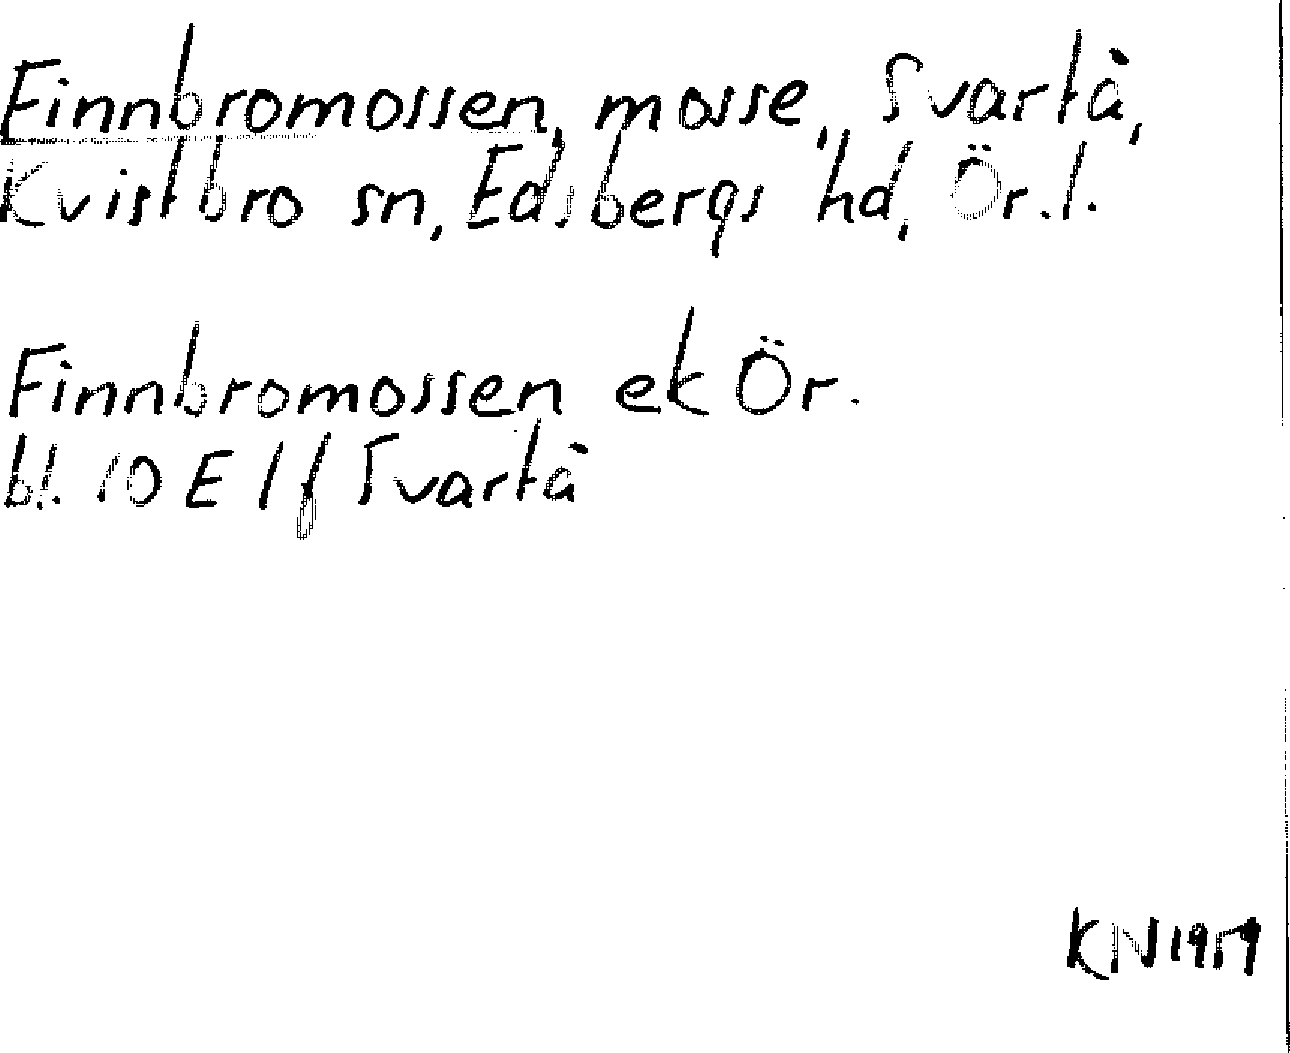 Finnbromossen, mosse, Svartå,
Kvistbro sn, Edsbergs hd, Ör.l.
Finnbromossen ek Ör.
bl. 10 E 1 f Svartå